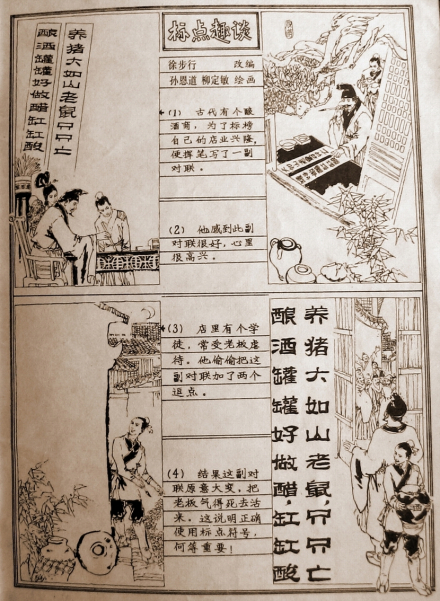 标点趣谈
徐步行 改编
孙恩道 柳定敏 绘画
养猪大如山老鼠只只亡
酿酒罐罐好做醋缸缸酸
(1) 古代有个酿
酒商，为了标榜
自己的店业兴隆，
便挥笔写了一副
对联。
(2) 他感到此副
对联很好，心里
很高兴。
(3) 店里有个学
徒，常受老板虐
待。他偷偷把这
副对联加了两个
逗点。
(4) 结果这副对
联原意大变，把
老板气得死去活
来。这说明正确
使用标点符号，
何等重要！
养猪大如山老鼠，只只亡
酿酒罐罐好做醋，缸缸酸